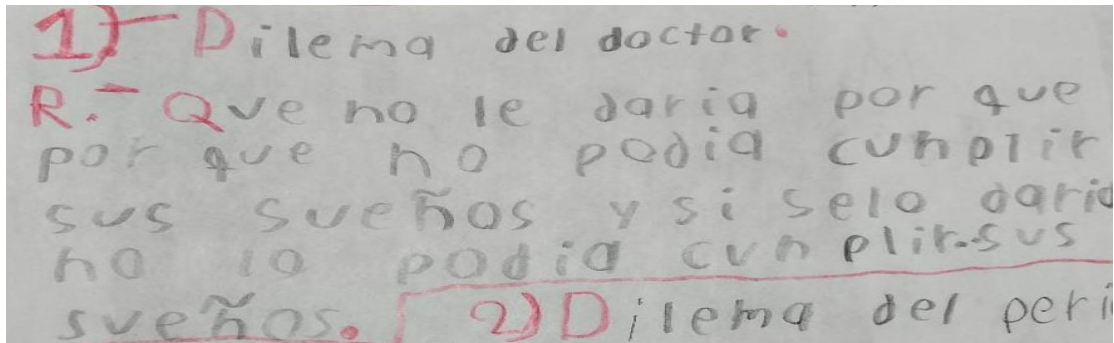 1)- Dilema del doctor.
R.- Que no le daria por que
por que no podia cunplir
sus sueños y si selo daria
no lo podia cunplir.sus
sueños. 2) Dilema del peri